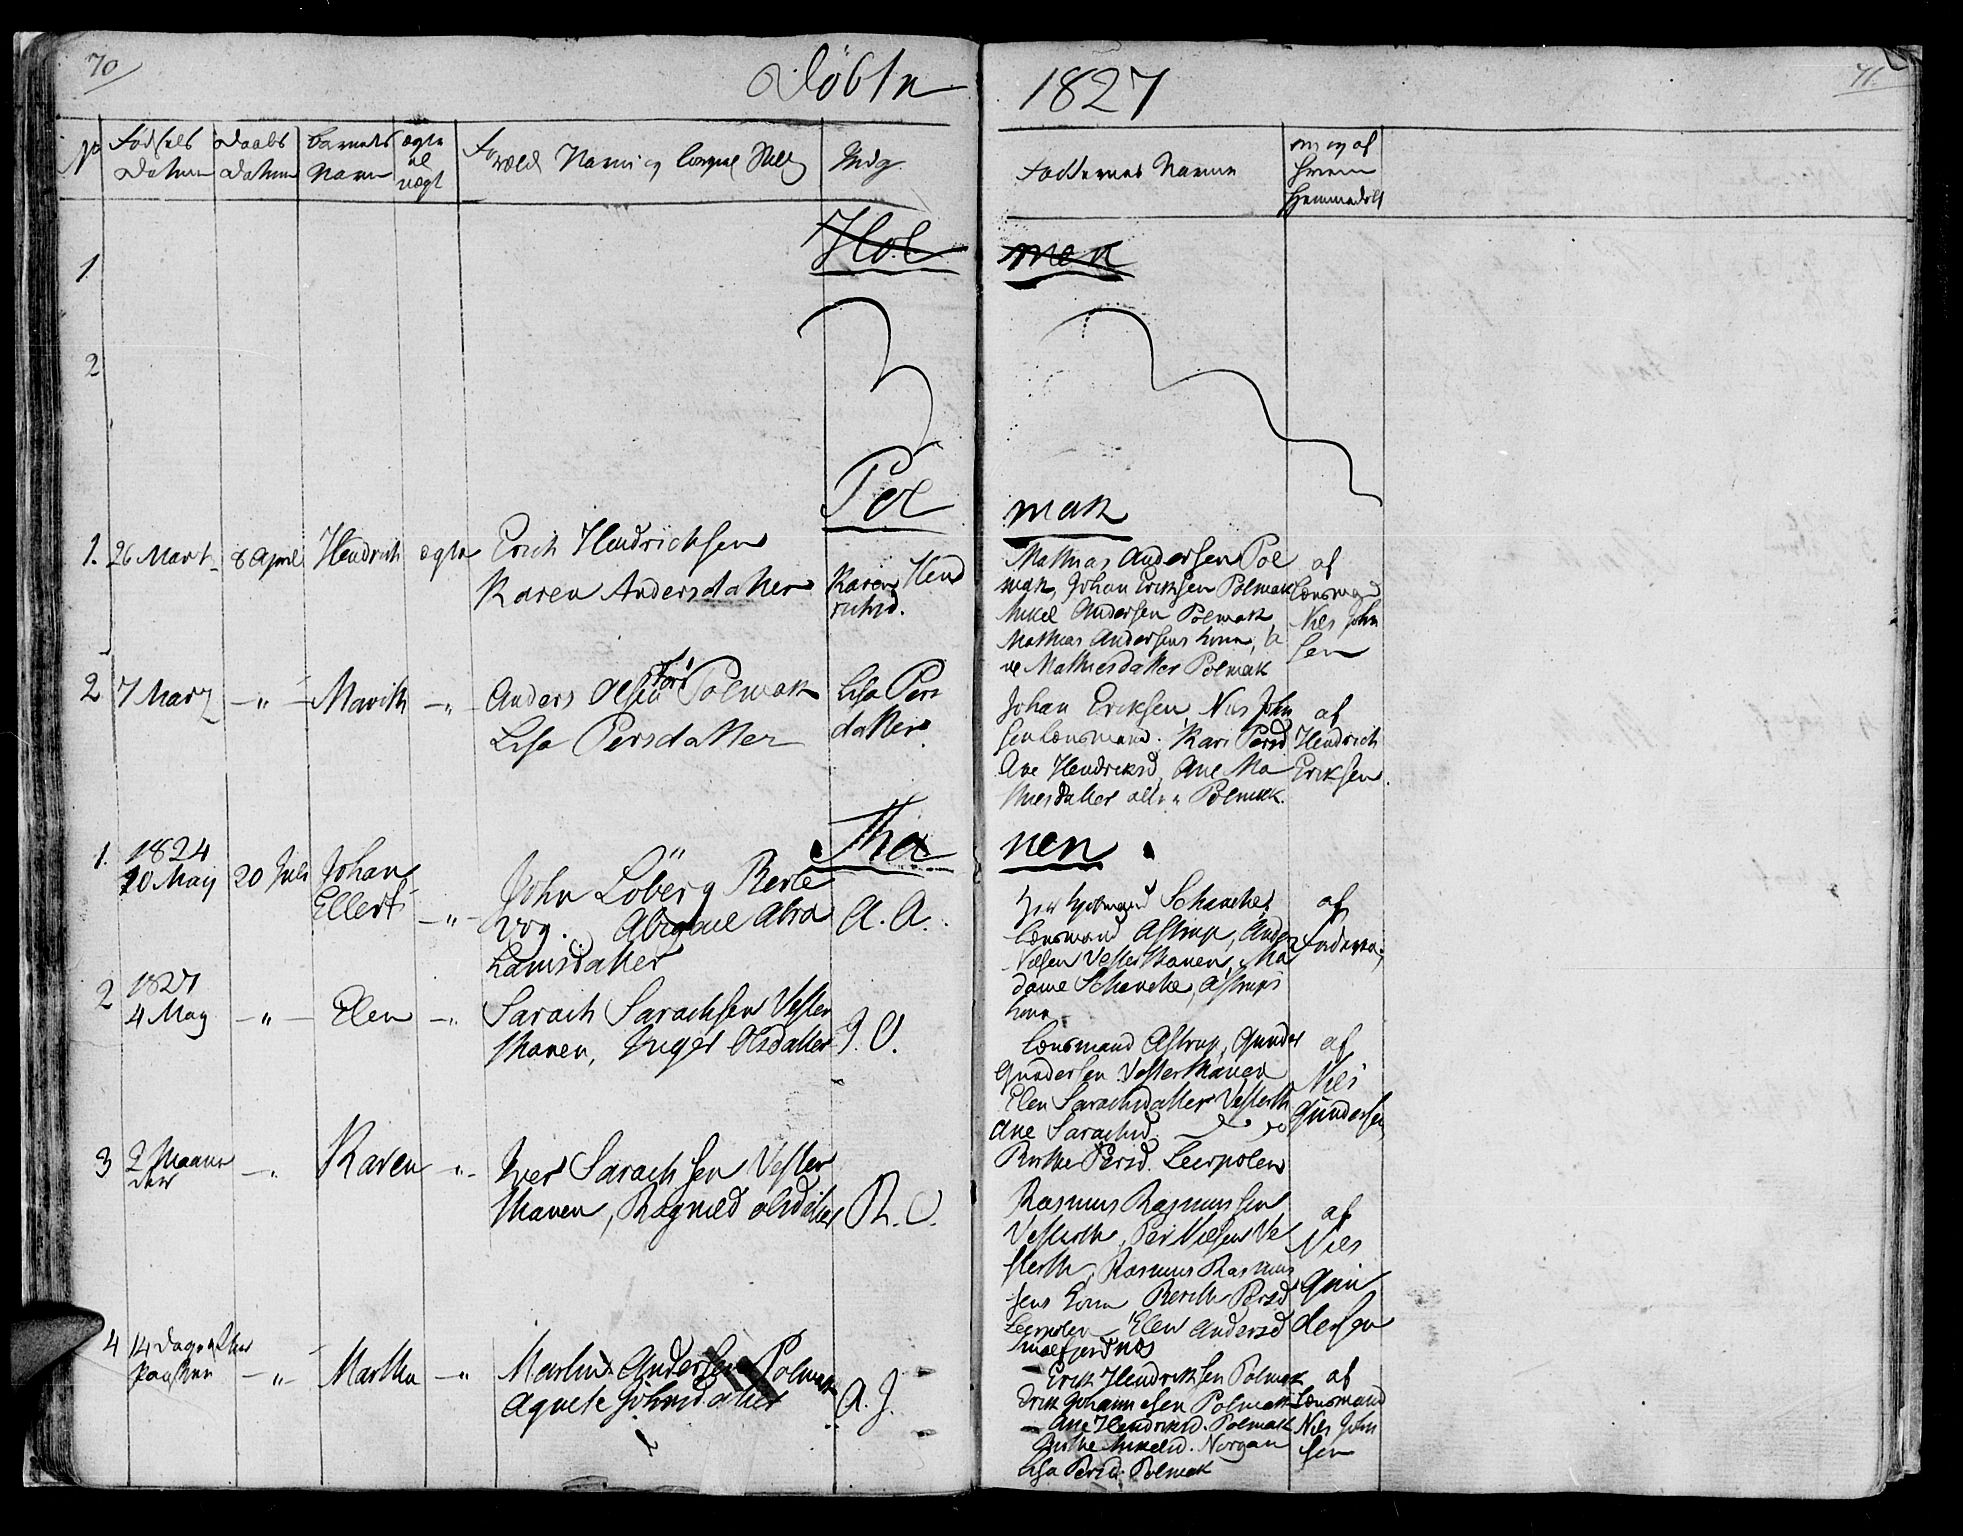 70
Döbte
1827
71.
No
Fødsels Datum
Daabs Datum
Barnets Navn
ægte el uægt
Foræld Navn og
Fadernes Navne
af hvem Hjemmedøbt
Hol
men
1
2
Pol
mak
1. 26 Mart 8 April Hendrich ægte
Erich Hendrichsen
Karen Andersdatter
Karen Hend
richsd.
Mathias Andersen Pol
mak, Johan Eriksen Polmak
Mikel Andersen Polmak
Mathias Andersens Kone,
Mathiesdatter Polmak
af
Lænsmand
Niels John
sen
2 7 Marz - " - Marith - " -
Anders Olsen Polmak
Lisa Persdatter
Lisa Pers
datter
Johan Eriksen, Niels John
sen Lænsmand. Kari Persd
Ane Hendriksd, Ane Ma
thiesdatter alle Polmak.
af
Hendrich
Eriksen.
Tha
nen
1. 1824
10 May 20 Juli Johan
Ellert - " -
John Löberg Berle
vog. Abigael Abra
hamsdatter
A. A.
Schanche,
Lænsmand Astrup, Anders
Nielsen Vesterthanen, Ma
dame Schanche, Astrups
Kone
af
2 1827
4 May - " - Elen - " -
Sarach Sarachsen Vester
thanen, Inger Olsdatter
I. O.
Lænsmand Astrup, Gunder
Gundersen Vesterthanen
Elen Sarachsdatter Vesterth
Ane Sarachsd. do
Birthe Persd. Leerpolen
af
Niels
Gundersen
3 2 Maane
der - " - Karen - " -
Iver Sarachsen Vester
thanen, Ragnild Olsdatter
R. O.
Rasmus Rasmussen
Vesterth, Per Nielsen Ve
sterth, Rasmus Rasmus
sens Kone Berith Persd
Leerpolen Elen Andersd
Smalfjordnæs
af
Niels
Gun
dersen
4 14 Dage efter
Paasken - " - Martha - "
Martin Andersen Polmak
Agnete Johnsdatter
A. J.
Erik Hendriksen Polmak
Erik Johannesen Polmak
Ane Hendriksd. Polmak
Birthe Mikelsd. Norgan
Lisa Persd. Polmak
af
Lænsmand
Niels John
sen